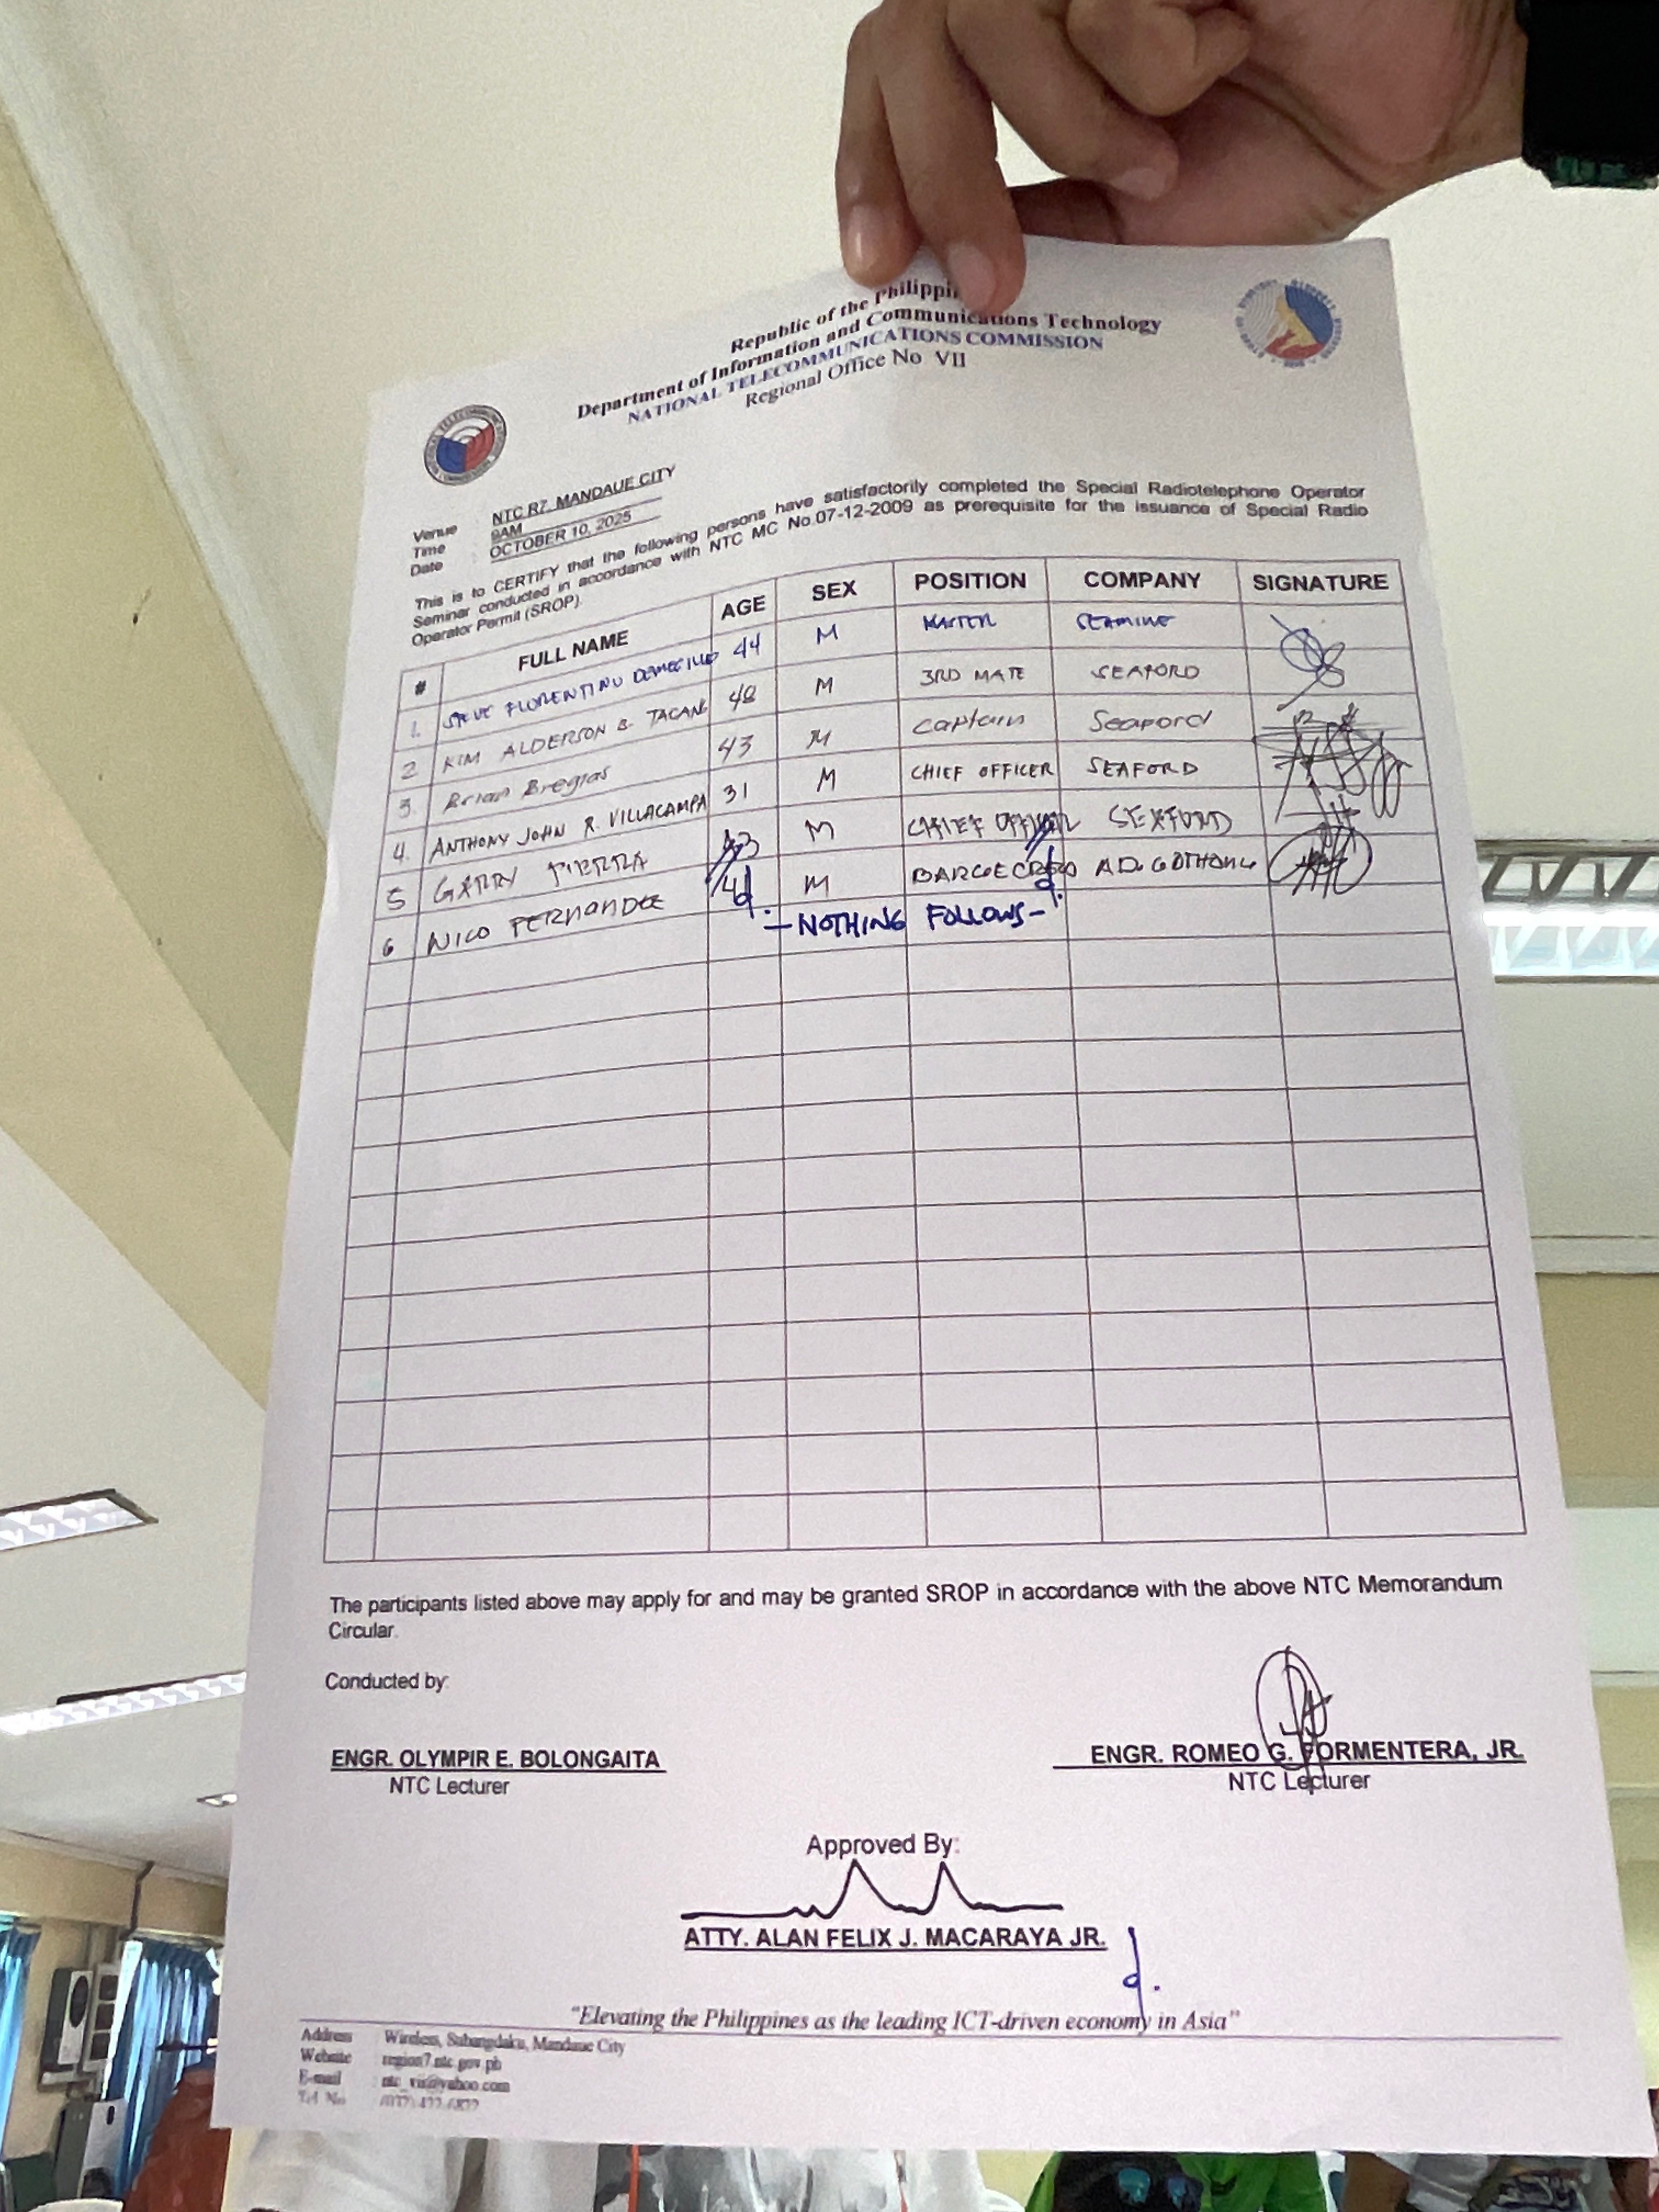 Republic of the Philippi
Department of Information and Communications Technology
NATIONAL TELECOMMUNICATIONS COMMISSION
Regional Office No VII
Venue NTC R7, MANDAUE CITY
Time : 9AM
Date : OCTOBER 10, 2025
This is to CERTIFY that the following persons have satisfactorily completed the Special Radiotelephone Operator
Seminar conducted in accordance with NTC MC No.07-12-2009 as prerequisite for the issuance of Special Radio
Operator Permit (SROP).
# FULL NAME AGE SEX POSITION COMPANY SIGNATURE
1. FLORENTINO 44 M MASTER
2 KIM ALDERSON B. TACANG 48 M 3RD MATE SEAFORD
3. Brian Bregias 43 M Captain Seaford
4. ANTHONY JOHN R. VILLACAMPA 31 M CHIEF OFFICER SEAFORD
5 GARRY M CHIEF OFFICER SEAFORD
6 NICO M
- NOTHING FOLLOWS -
The participants listed above may apply for and may be granted SROP in accordance with the above NTC Memorandum
Circular.
Conducted by:
ENGR. OLYMPIR E. BOLONGAITA
NTC Lecturer
ENGR. ROMEO G. FORMENTERA, JR.
NTC Lecturer
Approved By:
ATTY. ALAN FELIX J. MACARAYA JR.
"Elevating the Philippines as the leading ICT-driven economy in Asia"
Address Wireless, Subangdaku, Mandaue City
Website region7.ntc.gov.ph
E-mail : ntc_vii@yahoo.com
Tel. No.